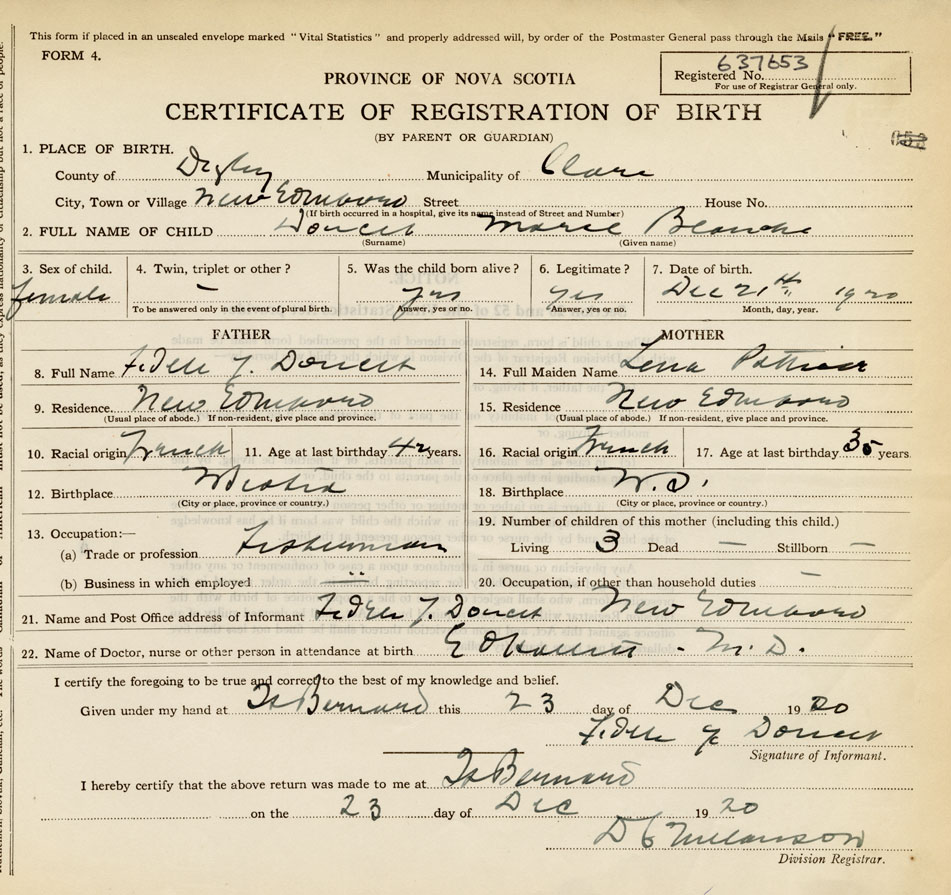 This form if placed in an unsealed envelope marked "Vital Statistics" and properly addressed will, by order of the Postmaster General pass through the Mails "FREE."
FORM 4.
637653
Registered No.
For use of Registrar General only.
PROVINCE OF NOVA SCOTIA
CERTIFICATE OF REGISTRATION OF BIRTH
(BY PARENT OR GUARDIAN)
1. PLACE OF BIRTH.
County of Digby Municipality of Clare
City, Town or Village New Edinboro Street House No.
(If birth occurred in a hospital, give its name instead of Street and Number)
2. FULL NAME OF CHILD Doucet Marie Blanche
(Surname) (Given name)
3. Sex of child. 4. Twin, triplet or other? 5. Was the child born alive? 6. Legitimate? 7. Date of birth.
female – yes yes Dec 21th 1920
To be answered only in the event of plural birth. Answer, yes or no. Answer, yes or no. Month, day, year.
FATHER MOTHER
8. Full Name Fidele J. Doucet 14. Full Maiden Name Lena
9. Residence New Edinboro 15. Residence New Edinboro
(Usual place of abode.) If non-resident, give place and province. (Usual place of abode.) If non-resident, give place and province.
10. Racial origin French 11. Age at last birthday 42 years. 16. Racial origin French 17. Age at last birthday 35 years
12. Birthplace 18. Birthplace
(City or place, province or country.) (City or place, province or country.)
13. Occupation:— 19. Number of children of this mother (including this child.)
(a) Trade or profession Fisherman Living 3 Dead — Stillborn —
(b) Business in which employed — 20. Occupation, if other than household duties —
21. Name and Post Office address of Informant Fidele J. Doucet New Edinboro
22. Name of Doctor, nurse or other person in attendance at birth M.D.
I certify the foregoing to be true and correct to the best of my knowledge and belief.
Given under my hand at St Bernard this 23 day of Dec 1920
Fidele J Doucet
Signature of Informant.
I hereby certify that the above return was made to me at St Bernard
on the 23 day of Dec 1920
Melanson
Division Registrar.